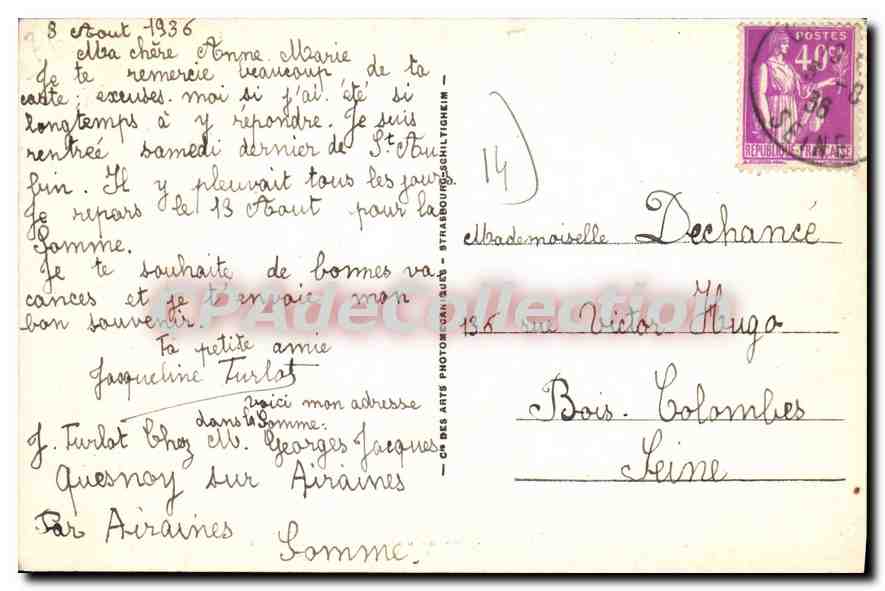 8 Aout 1936
Ma chère Anne Marie
Je te remercie beaucoup de ta
carte; excuses. moi si j'ai été si
longtemps à y répondre. Je suis
rentrée samedi dernier de St Au
bin. Il y pleuvait tous les jours.
Je repars le 13 Aout pour la
Somme.
Je te souhaite de bonnes va
cances et je t'envoie mon
bon souvenir.
Ta petite amie
Jacqueline Turlot
voici mon adresse
dans la Somme:
J. Turlot Chez M. Georges Jacques
Quesnoy sur Airaines
Par Airaines
Somme.
— Cie DES ARTS PHOTOMECANIQUES - STRASBOURG-SCHILTIGHEIM —
14)
POSTES
40c
RÉPUBLIQUE FRANÇAISE
36
SEINE
Mademoiselle Dechancé
136 rue Victor Hugo
Bois. Colombes
Seine
CPAdeCollection